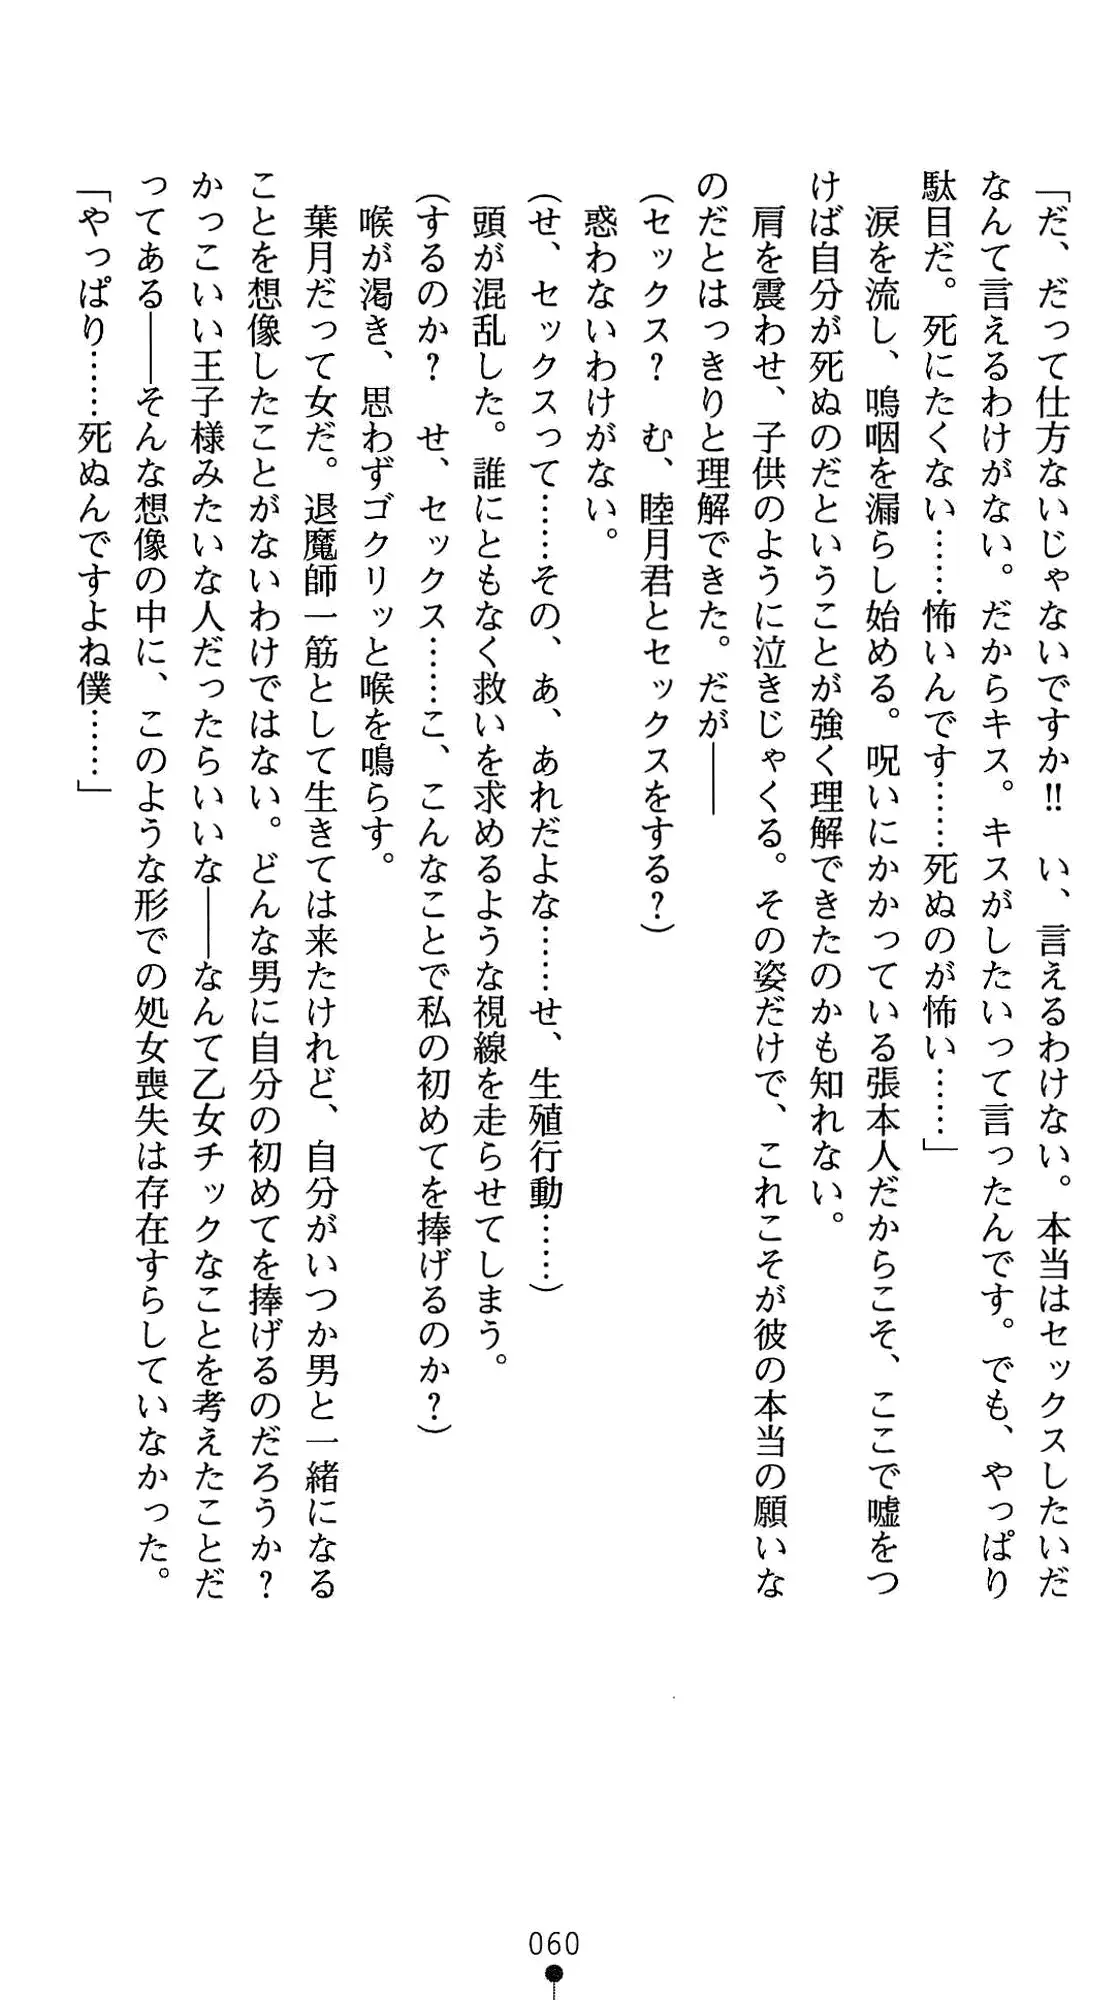 「だ、だって仕方ないじゃないですか!!　い、言えるわけない。本当はセックスしたいだ
なんて言えるわけがない。だからキス。キスがしたいって言ったんです。でも、やっぱり
駄目だ。死にたくない……怖いんです……死ぬのが怖い……」
　涙を流し、嗚咽を漏らし始める。呪いにかかっている張本人だからこそ、ここで嘘をつ
けば自分が死ぬのだということが強く理解できたのかも知れない。
　肩を震わせ、子供のように泣きじゃくる。その姿だけで、これこそが彼の本当の願いな
のだとはっきりと理解できた。だが――
(セックス？　む、睦月君とセックスをする？)
　惑わないわけがない。
(せ、セックスって……その、あ、あれだよな……せ、生殖行動……)
　頭が混乱した。誰にともなく救いを求めるような視線を走らせてしまう。
(するのか？　せ、セックス……こ、こんなことで私の初めてを捧げるのか？)
　喉が渇き、思わずゴクリッと喉を鳴らす。
　葉月だって女だ。退魔師一筋として生きては来たけれど、自分がいつか男と一緒になる
ことを想像したことがないわけではない。どんな男に自分の初めてを捧げるのだろうか？
かっこいい王子様みたいな人だったらいいな――なんて乙女チックなことを考えたことだ
ってある――そんな想像の中に、このような形での処女喪失は存在すらしていなかった。
「やっぱり……死ぬんですよね僕……」
060